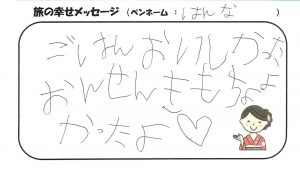 旅の幸せメッセージ （ペンネーム：はんな）
ごはんおいしかった
おんせんきもちょよ
かったよ♡